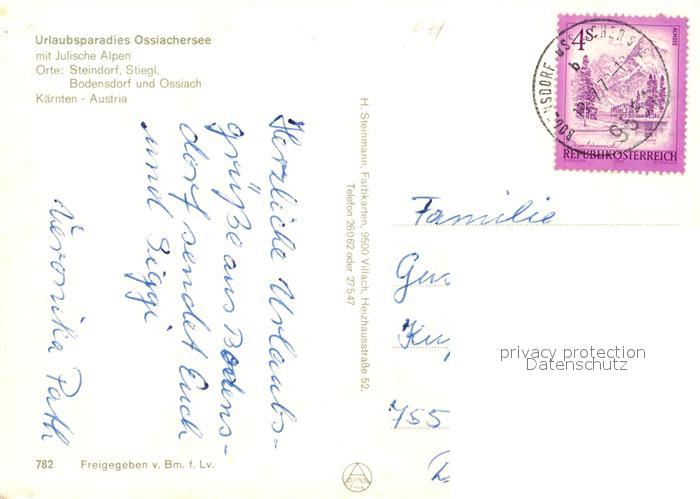 Urlaubsparadies Ossiachersee
mit Julische Alpen
Orte: Steindorf, Stiegl,
Bodensdorf und Ossiach
Kärnten - Austria
Herzliche Urlaubs-
grüße aus Bodens-
dorf sendet Euch
und Siggi
Veronika Path
782 Freigegeben v. Bm. f. Lv.
H. Steinmann, Farbkarten, 9500 Villach, Heizhausstraße 52.
Telefon 26062 oder 27547
4 S
ALMSEE
REPUBLIK ÖSTERREICH
BODENSDORF OSSIACHERSEE
b
Familie
755
privacy protection
Datenschutz